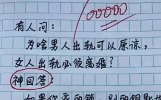 有人问：
为啥男人出轨可以原谅，
女人出轨必须离婚？
神回答：